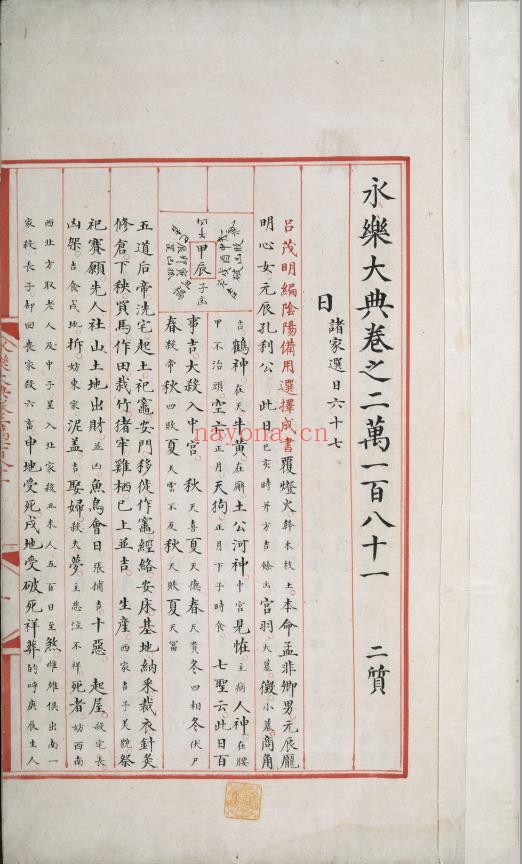 永樂大典卷之二萬一百八十一 二質
日 諸家選日六十七
呂茂明編陰陽備用選擇成書覆燈火幹木枝土本命孟非卿男元辰龎
明心女元辰孔利公 此日己亥時并方吉餘凶宮羽大墓徵小墓商角
吉鶴神在天牛黃在廟土公河神中宮見恠主病人神在腰
甲不治頭空亡正月天狗正月下子時食 七聖云此日百
甲辰
事吉大殺入中宮 秋天喜夏天德春天貴冬四相冬伏尸
春殺帝秋四敗夏天雲不反秋天敗夏天富
五道后帝洗宅起土祀竈安門移徙作竈經絡安床基地納采裁衣針灸
修倉下秧買馬作田栽竹猪牢雞棲已上並吉 生產西家吉子美貌祭
祀賽願先人社山土地出財並凶魚鳥會日張捕吉十惡 起屋殺宅長
凶架吉食戌地拆妨東家泥盖吉娶婦殺夫夢主悲泣不祥死者妨西南
西北方取老人及中子星入北家殺丑未人五百日至煞雌雄俱出南一
家殺長子却回喪家殺六畜申地受死戌地受破死祥葬的呼庚辰生人
nayona.cn